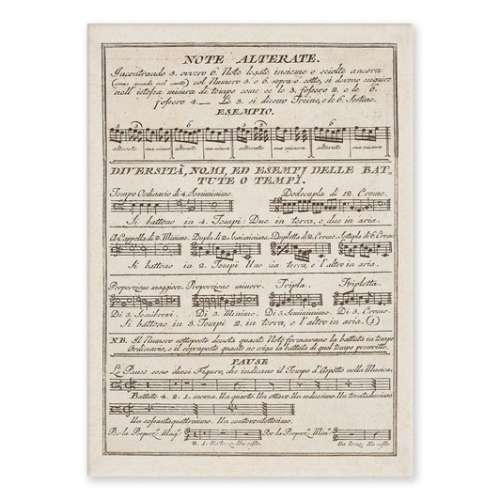 NOTE ALTERATE.
Incontrando 3. ovvero 6. Note legate insieme o sciolte ancora
nell' istessa misura di tempo come se le 3. fossero 2. e le 6.
fossero 4. Le 3. si dicono Treine, e le 6. Sestine.
ESEMPIO.
alterate sua misura alterate sua misura alterate sua misura alterate sua misura
DIVERSITÀ, NOMI, ED ESEMPJ DELLE BAT-
TUTE O TEMPJ.
Tempo Ordinario di 4. Semiminime. Dodecupla di 12. Crome.
Si battono in 4. Tempi. Due in terra, e due in aria.
A Cappella di 2. Minime. Dupla di 2. Semiminime. Dupletta di 2. Crome. Sestupla di 6. Crome.
Si battono in 2. Tempi Uno in terra, e l'altro in aria.
Proporzione maggiore. Proporzione minore. Tripla. Tripletta.
Di 3. Semibrevi. Di 3. Minime. Di 3. Semiminime. Di 3. Crome.
Si battono in 3. Tempi 2. in terra, e l'altro in aria. (1)
NB. Il Numero sottoposto denota quante Note formavano la battuta in tempo
Ordinario, e il soprapposto quante ne esiga la battuta di quel tempo prescritto.
PAUSE
Le Pause sono dieci Figure, che indicano il Tempo d'Aspetto nella Musica.
Battute 4. 2. 1. mezza. Un quarto Un ottavo Un sedicesimo Un trentaduesimo
Un sessantaquattresimo. Un centoventottesimo.
Per la Proporz. Mag. Per la Proporz. Min.